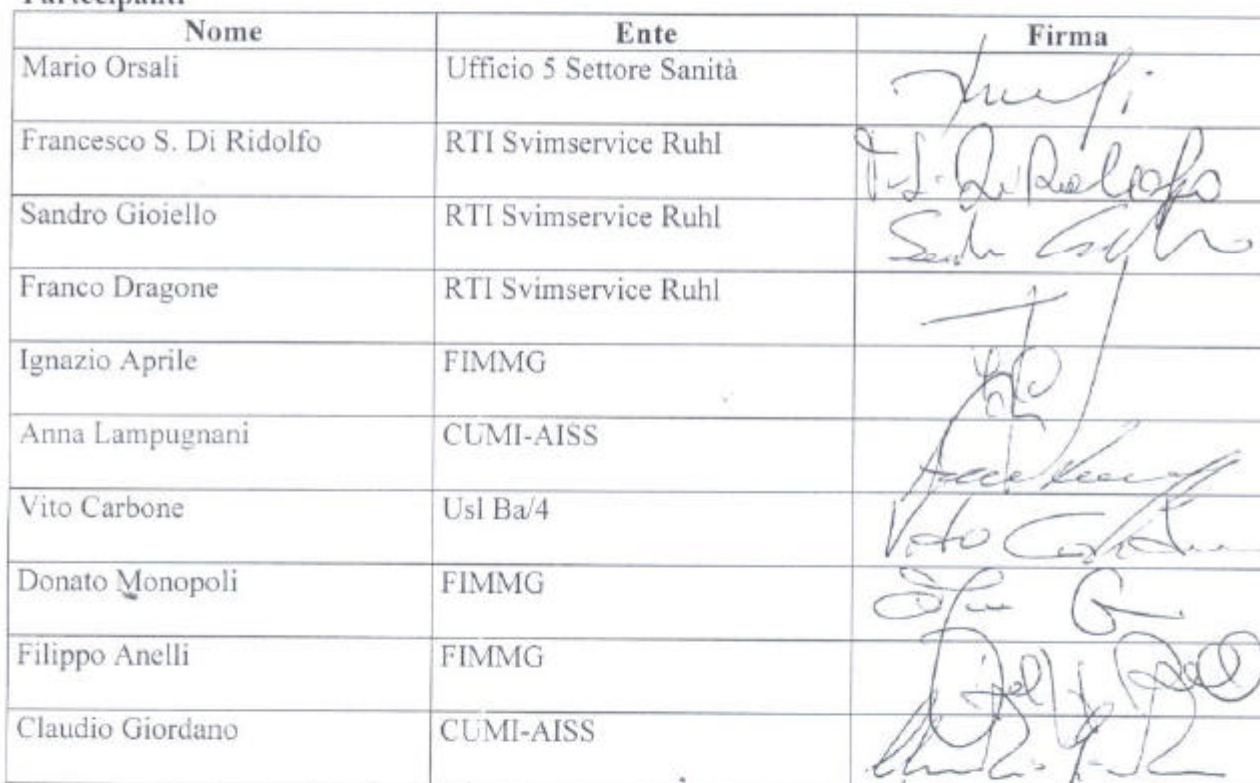 Partecipanti
Nome Ente Firma
Mario Orsali Ufficio 5 Settore Sanità
Francesco S. Di Ridolfo RTI Svimservice Ruhl F.S. Di Ridolfo
Sandro Gioiello RTI Svimservice Ruhl
Franco Dragone RTI Svimservice Ruhl
Ignazio Aprile FIMMG
Anna Lampugnani CUMI-AISS
Vito Carbone Usl Ba/4 Vito
Donato Monopoli FIMMG
Filippo Anelli FIMMG
Claudio Giordano CUMI-AISS